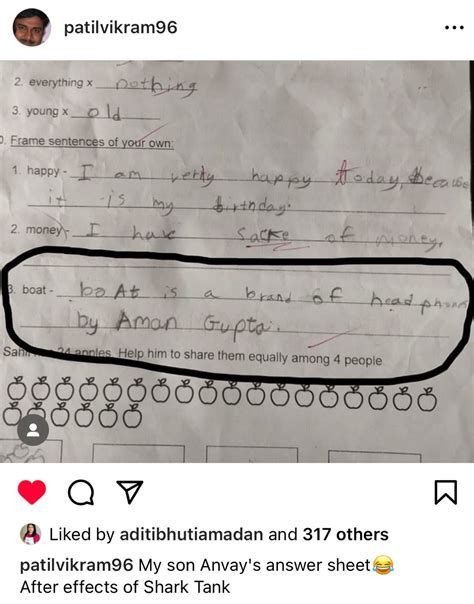 patilvikram96
2. everything x nothing
3. young x old
Frame sentences of your own:
1. happy - I am verty happy today, because
it is my birthday.
2. money - I have sacke of money.
3. boat - boAt is a brand of head phones
by Aman Gupta.
24 apples. Help him to share them equally among 4 people
Liked by aditibhutiamadan and 317 others
patilvikram96 My son Anvay's answer sheet😂
After effects of Shark Tank